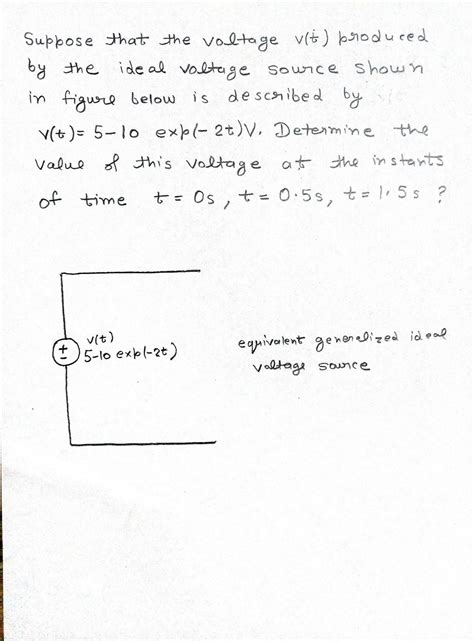 Suppose that the voltage v(t) produced
by the ideal voltage source shown
in figure below is described by
v(t)= 5-10 exp(-2t)V. Determine the
value of this voltage at the instants
of time t = 0s, t = 0.5s, t = 1.5s ?
v(t)
+
-
5-10 exp(-2t)
equivalent generalized ideal
voltage source